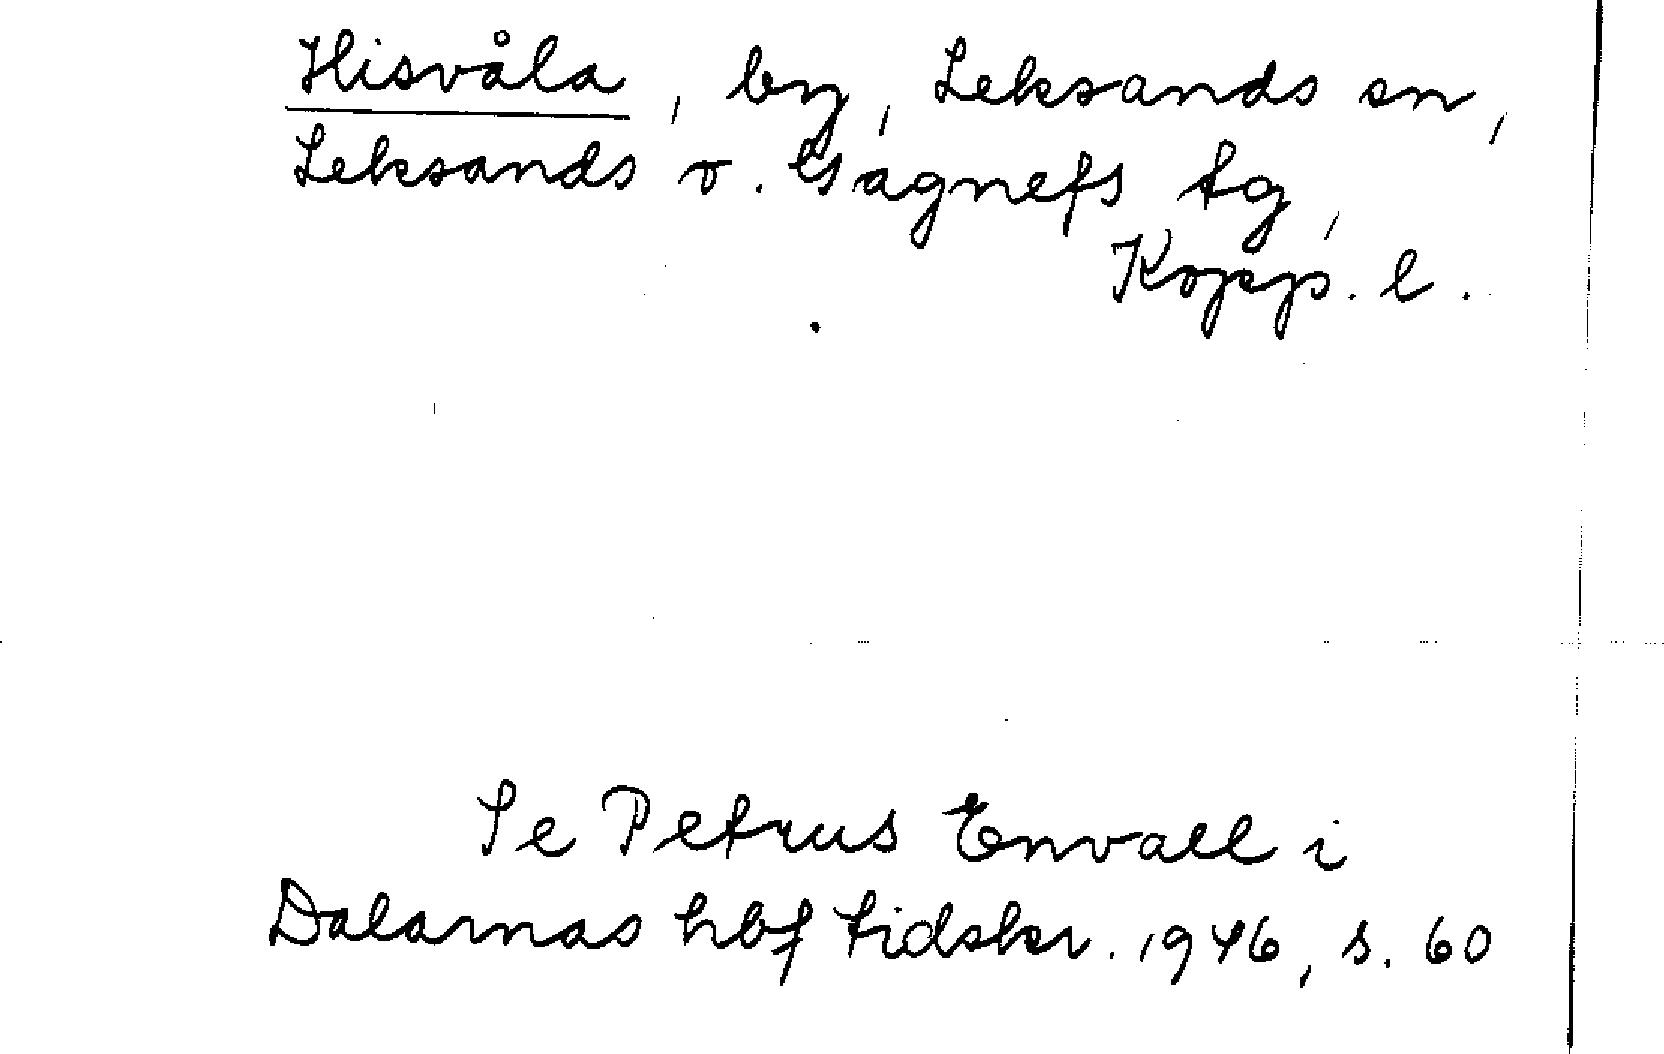 Hisvåla, by, Leksands sn,
Leksands o. Gagnefs tg,
Kopp. l.
Se Petrus Envall i
Dalarnas hbf tidskr. 1946, s. 60